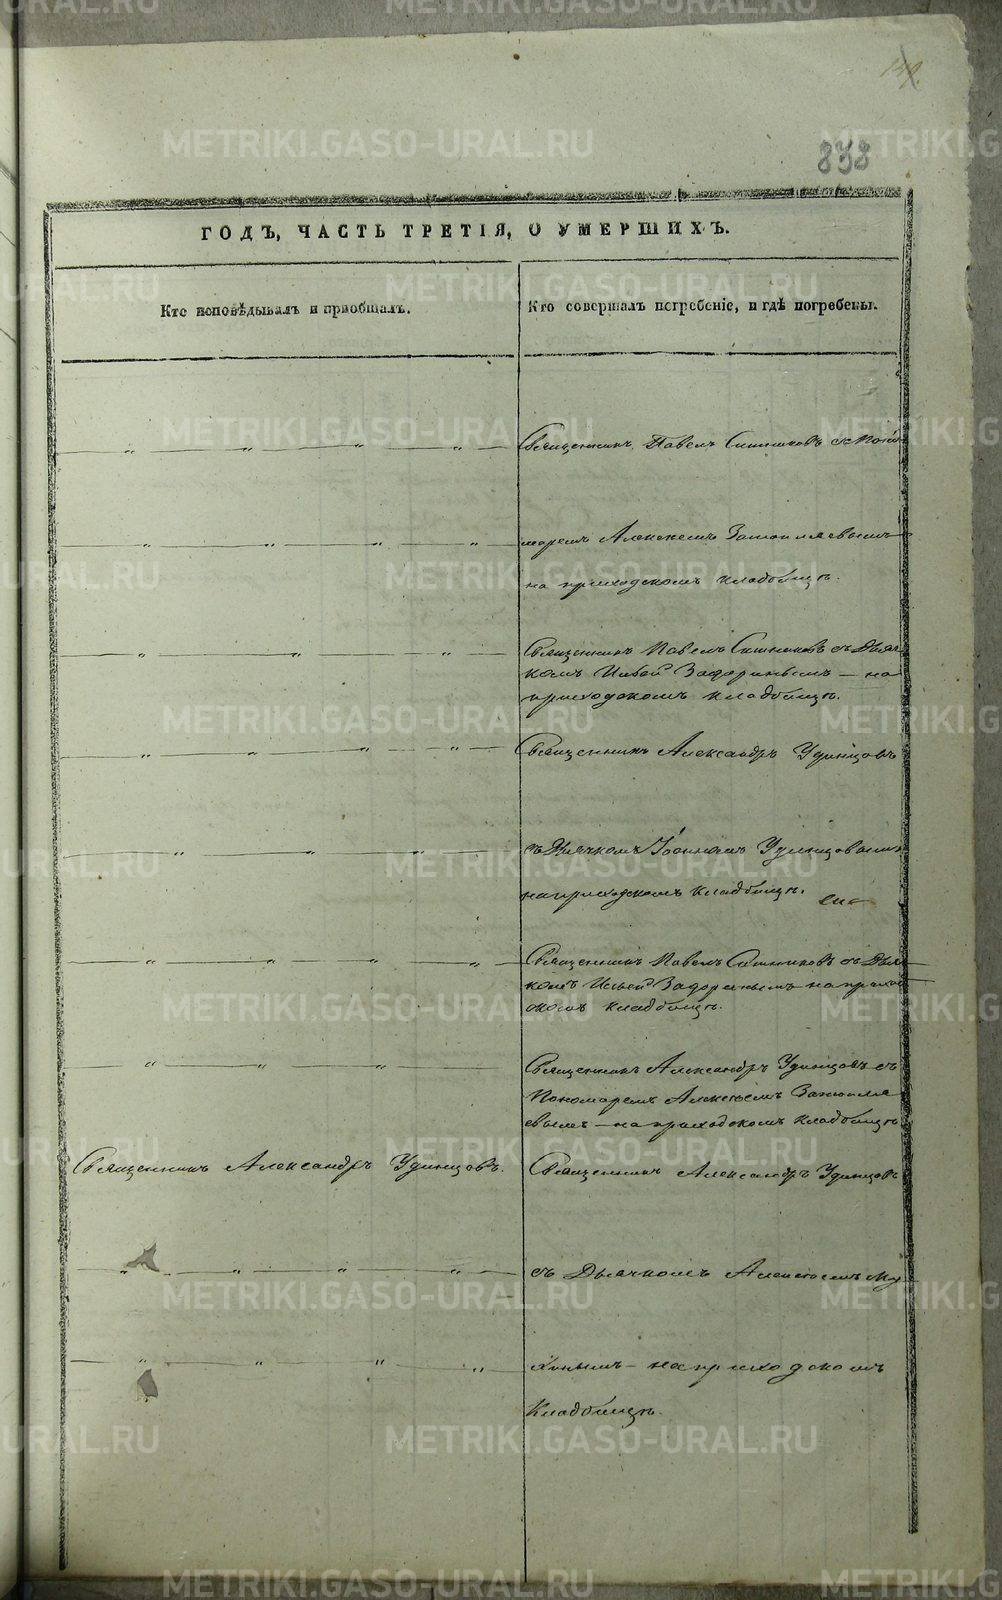 149.
838
ГОДЪ, ЧАСТЬ ТРЕТІЯ, О УМЕРШИХЪ.
Кто исповѣдывалъ и пріобщалъ.
Кто совершалъ погребеніе, и гдѣ погребены.
Священникъ Павелъ Ситниковъ съ Поно
маремъ Алексѣемъ
на приходскомъ кладбищѣ.
Священникъ Павелъ Ситниковъ съ Дьяч
комъ Ильей Задоринымъ — на
приходскомъ кладбищѣ.
Священникъ Александръ Удинцовъ
съ Дьячкомъ Іоанномъ Удинцовымъ
на приходскомъ кладбищѣ.
Священникъ Павелъ Ситниковъ съ Дьяч
комъ Ильей Задоринымъ на приход
скомъ кладбищѣ.
Священникъ Александръ Удинцовъ съ
Пономаремъ Алексѣемъ
евымъ — на приходскомъ кладбищѣ
Священникъ Александръ Удинцовъ.
Священникъ Александръ Удинцовъ
съ Дьячкомъ Алексѣемъ Му
хинымъ — на приходскомъ
Кладбищѣ.
METRIKI.GASO-URAL.RU